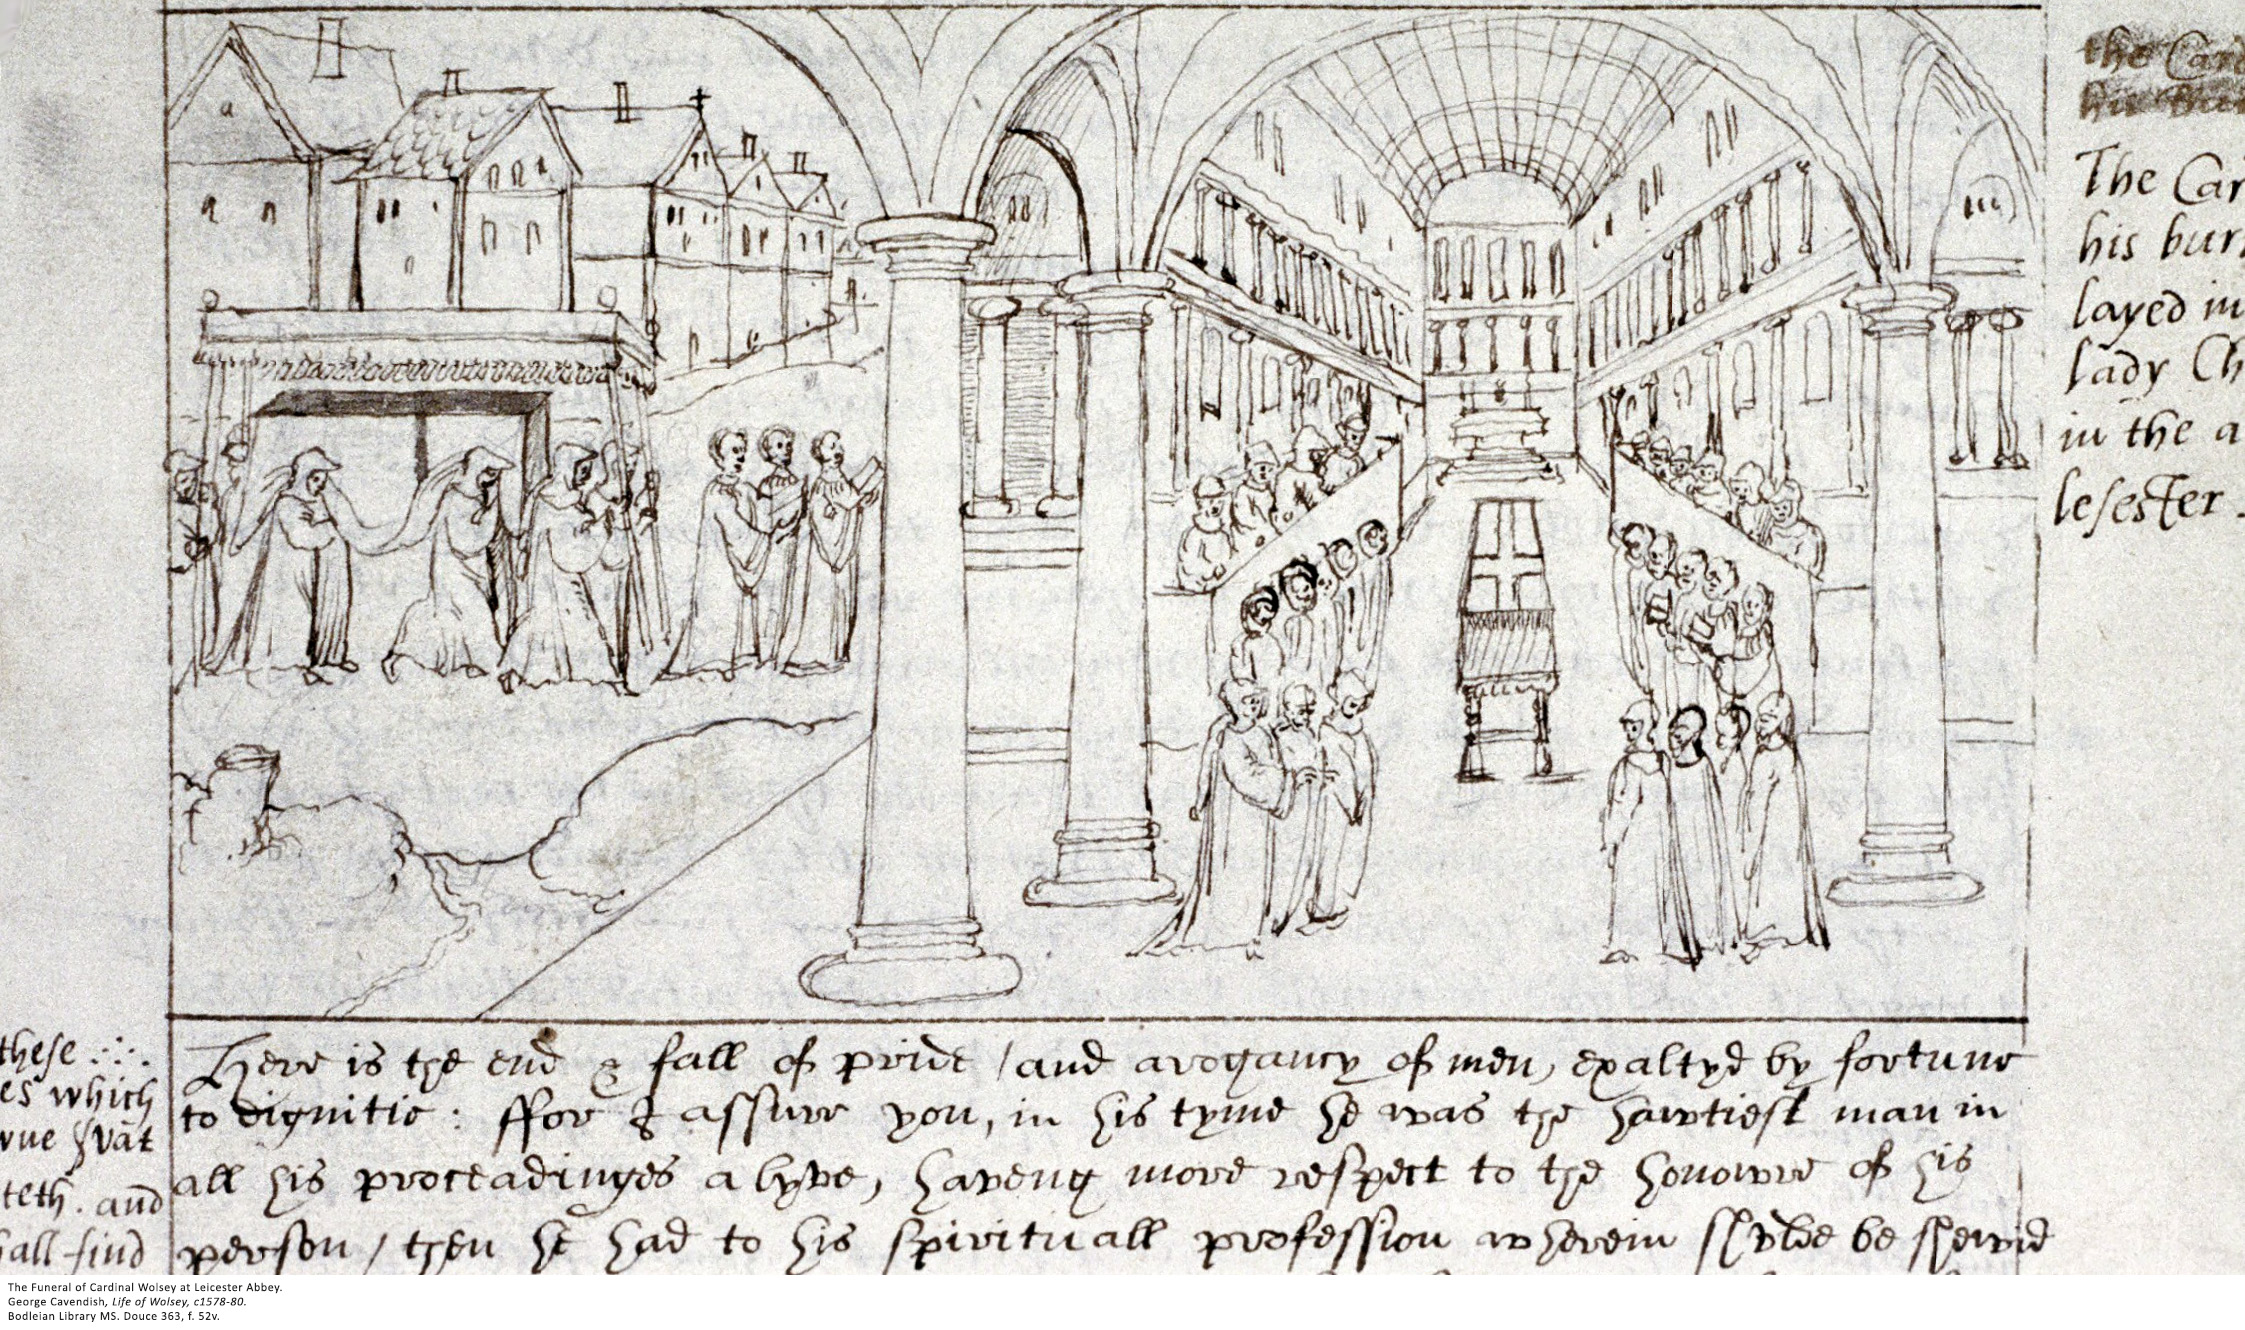 the Card
his bur
The Car
his buri
layed in
lady Ch
in the a
lesester
these
es which
vat
teth . and
all find
Here is the end & fall of pride / and arogancy of men, exaltyd by fortune
to dignitie : ffor I assure you, in his tyme he was the hawtiest man in
all his proceadinges alyve, haveng more respect to the honowre of his
person / then he had to his spirituall profession wherein shulde be shewid
The Funeral of Cardinal Wolsey at Leicester Abbey.
George Cavendish, Life of Wolsey, c1578-80.
Bodleian Library MS. Douce 363, f. 52v.